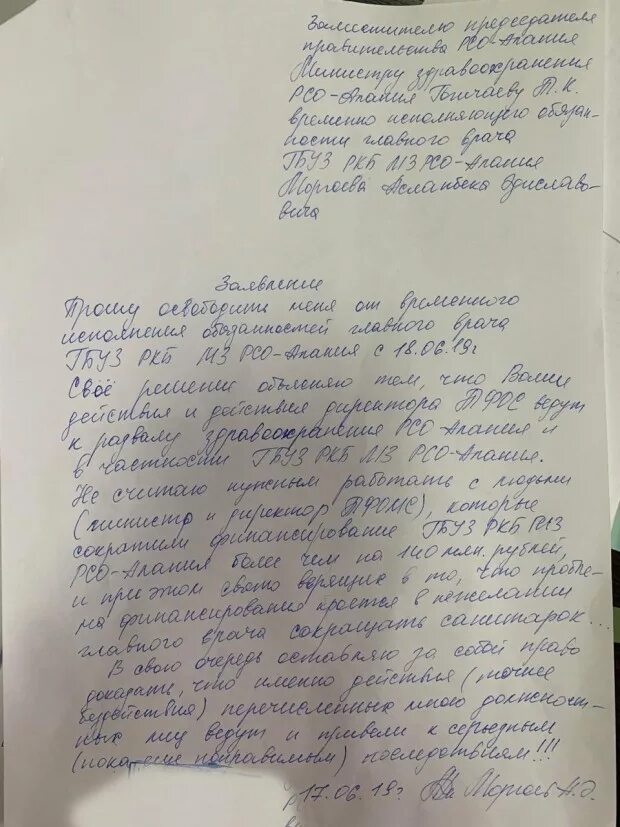 Заместителю председателя
правительства РСО-Алания
Министру здравоохранения
РСО-Алания Гогичаеву Т.К.
временно исполняющего обязан-
ности главного врача
ГБУЗ РКБ МЗ РСО-Алания
Моргоева Асланбека Эдиславо-
вича
Заявление
Прошу освободить меня от временного
исполнения обязанностей главного врача
ГБУЗ РКБ МЗ РСО-Алания с 18.06.19г
Своё решение объясняю тем, что Ваши
действия и действия директора ТФОС ведут
к развалу здравоохранения РСО-Алания и
в частности ГБУЗ РКБ МЗ РСО-Алания.
Не считаю нужным работать с людьми
(министр и директор ТФОМС), которые
сократили финансирование ГБУЗ РКБ МЗ
РСО-Алания более чем на 140 млн. рублей,
и при этом свято верящие в то, что пробле-
ма финансирования кроется в нежелании
главного врача сокращать санитарок...
В свою очередь оставляю за собой право
доказать, что именно действия (точнее
бездействия) перечисленных мною должност-
ных лиц ведут и привели к серьезным
(пока еще поправимым) последствиям!!!
17.06.19г Моргоев А.Э.